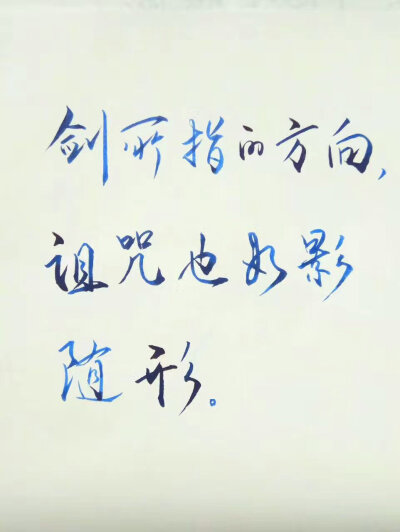 剑所指的方向,
诅咒也如影
随形。